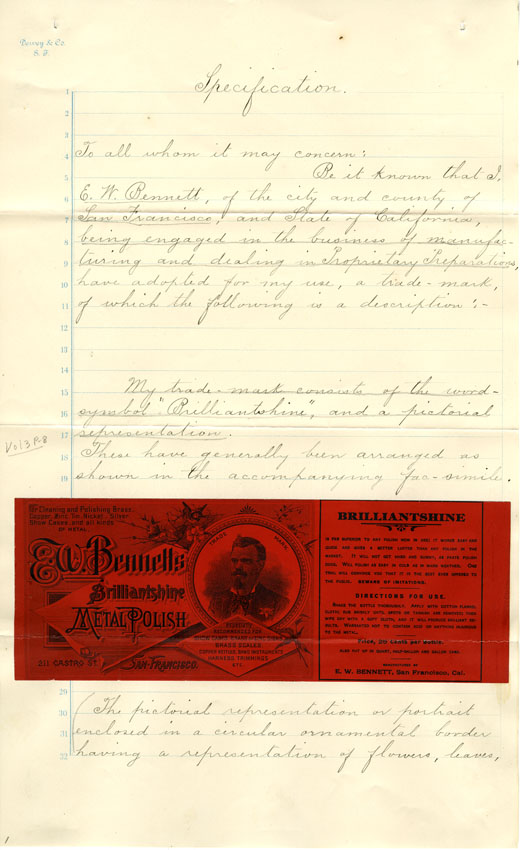 Dewey & Co.
S. F.
Specification.
1
2
3
4
5
6
7
8
9
10
11
12
13
14
15
16
17
18
19
To all whom it may concern:
Be it known that I,
E. W. Bennett, of the city and county of
San Francisco, and State of California,
being engaged in the business of manufac-
turing and dealing in Proprietary Preparations,
have adopted for my use, a trade-mark,
of which the following is a description:-
My trade-mark consists of the word-
symbol "Brilliantshine", and a pictorial
representation.
Vol 3 P-8
These have generally been arranged as
shown in the accompanying fac-simile.
For Cleaning and Polishing Brass,
Copper, Zinc, Tin, Nickel, Silver,
Show Cases, and all kinds
OF METAL.
E.W. Bennett's
Brilliantshine
METAL POLISH
211 CASTRO ST.
SAN FRANCISCO.
TRADE MARK
ESPECIALLY
RECOMMENDED FOR
BRASS SCALES
HARNESS TRIMMINGS
ETC.
BRILLIANTSHINE
IS FAR SUPERIOR TO ANY POLISH NOW IN USE! IT WORKS EASY AND
QUICK AND GIVES A BETTER LUSTER THAN ANY POLISH IN THE
MARKET. IT WILL NOT GET HARD AND GUMMY, AS PASTE POLISH
DOES. WILL POLISH AS EASY IN COLD AS IN WARM WEATHER. ONE
TRIAL WILL CONVINCE YOU THAT IT IS THE BEST EVER OFFERED TO
THE PUBLIC. BEWARE OF IMITATIONS.
DIRECTIONS FOR USE.
SHAKE THE BOTTLE THOROUGHLY. APPLY WITH COTTON FLANNEL
WIPE DRY WITH A SOFT CLOTH, AND IT WILL PRODUCE BRILLIANT RE-
SULTS. WARRANTED NOT TO CONTAIN ACID OR ANYTHING INJURIOUS
TO THE METAL.
Price, 50 cents per bottle.
ALSO PUT UP IN QUART, HALF-GALLON AND GALLON CANS.
MANUFACTURED BY
E. W. BENNETT, San Francisco, Cal.
29
30
31
32
(The pictorial representation or portrait
enclosed in a circular ornamental border
having a representation of flowers, leaves,